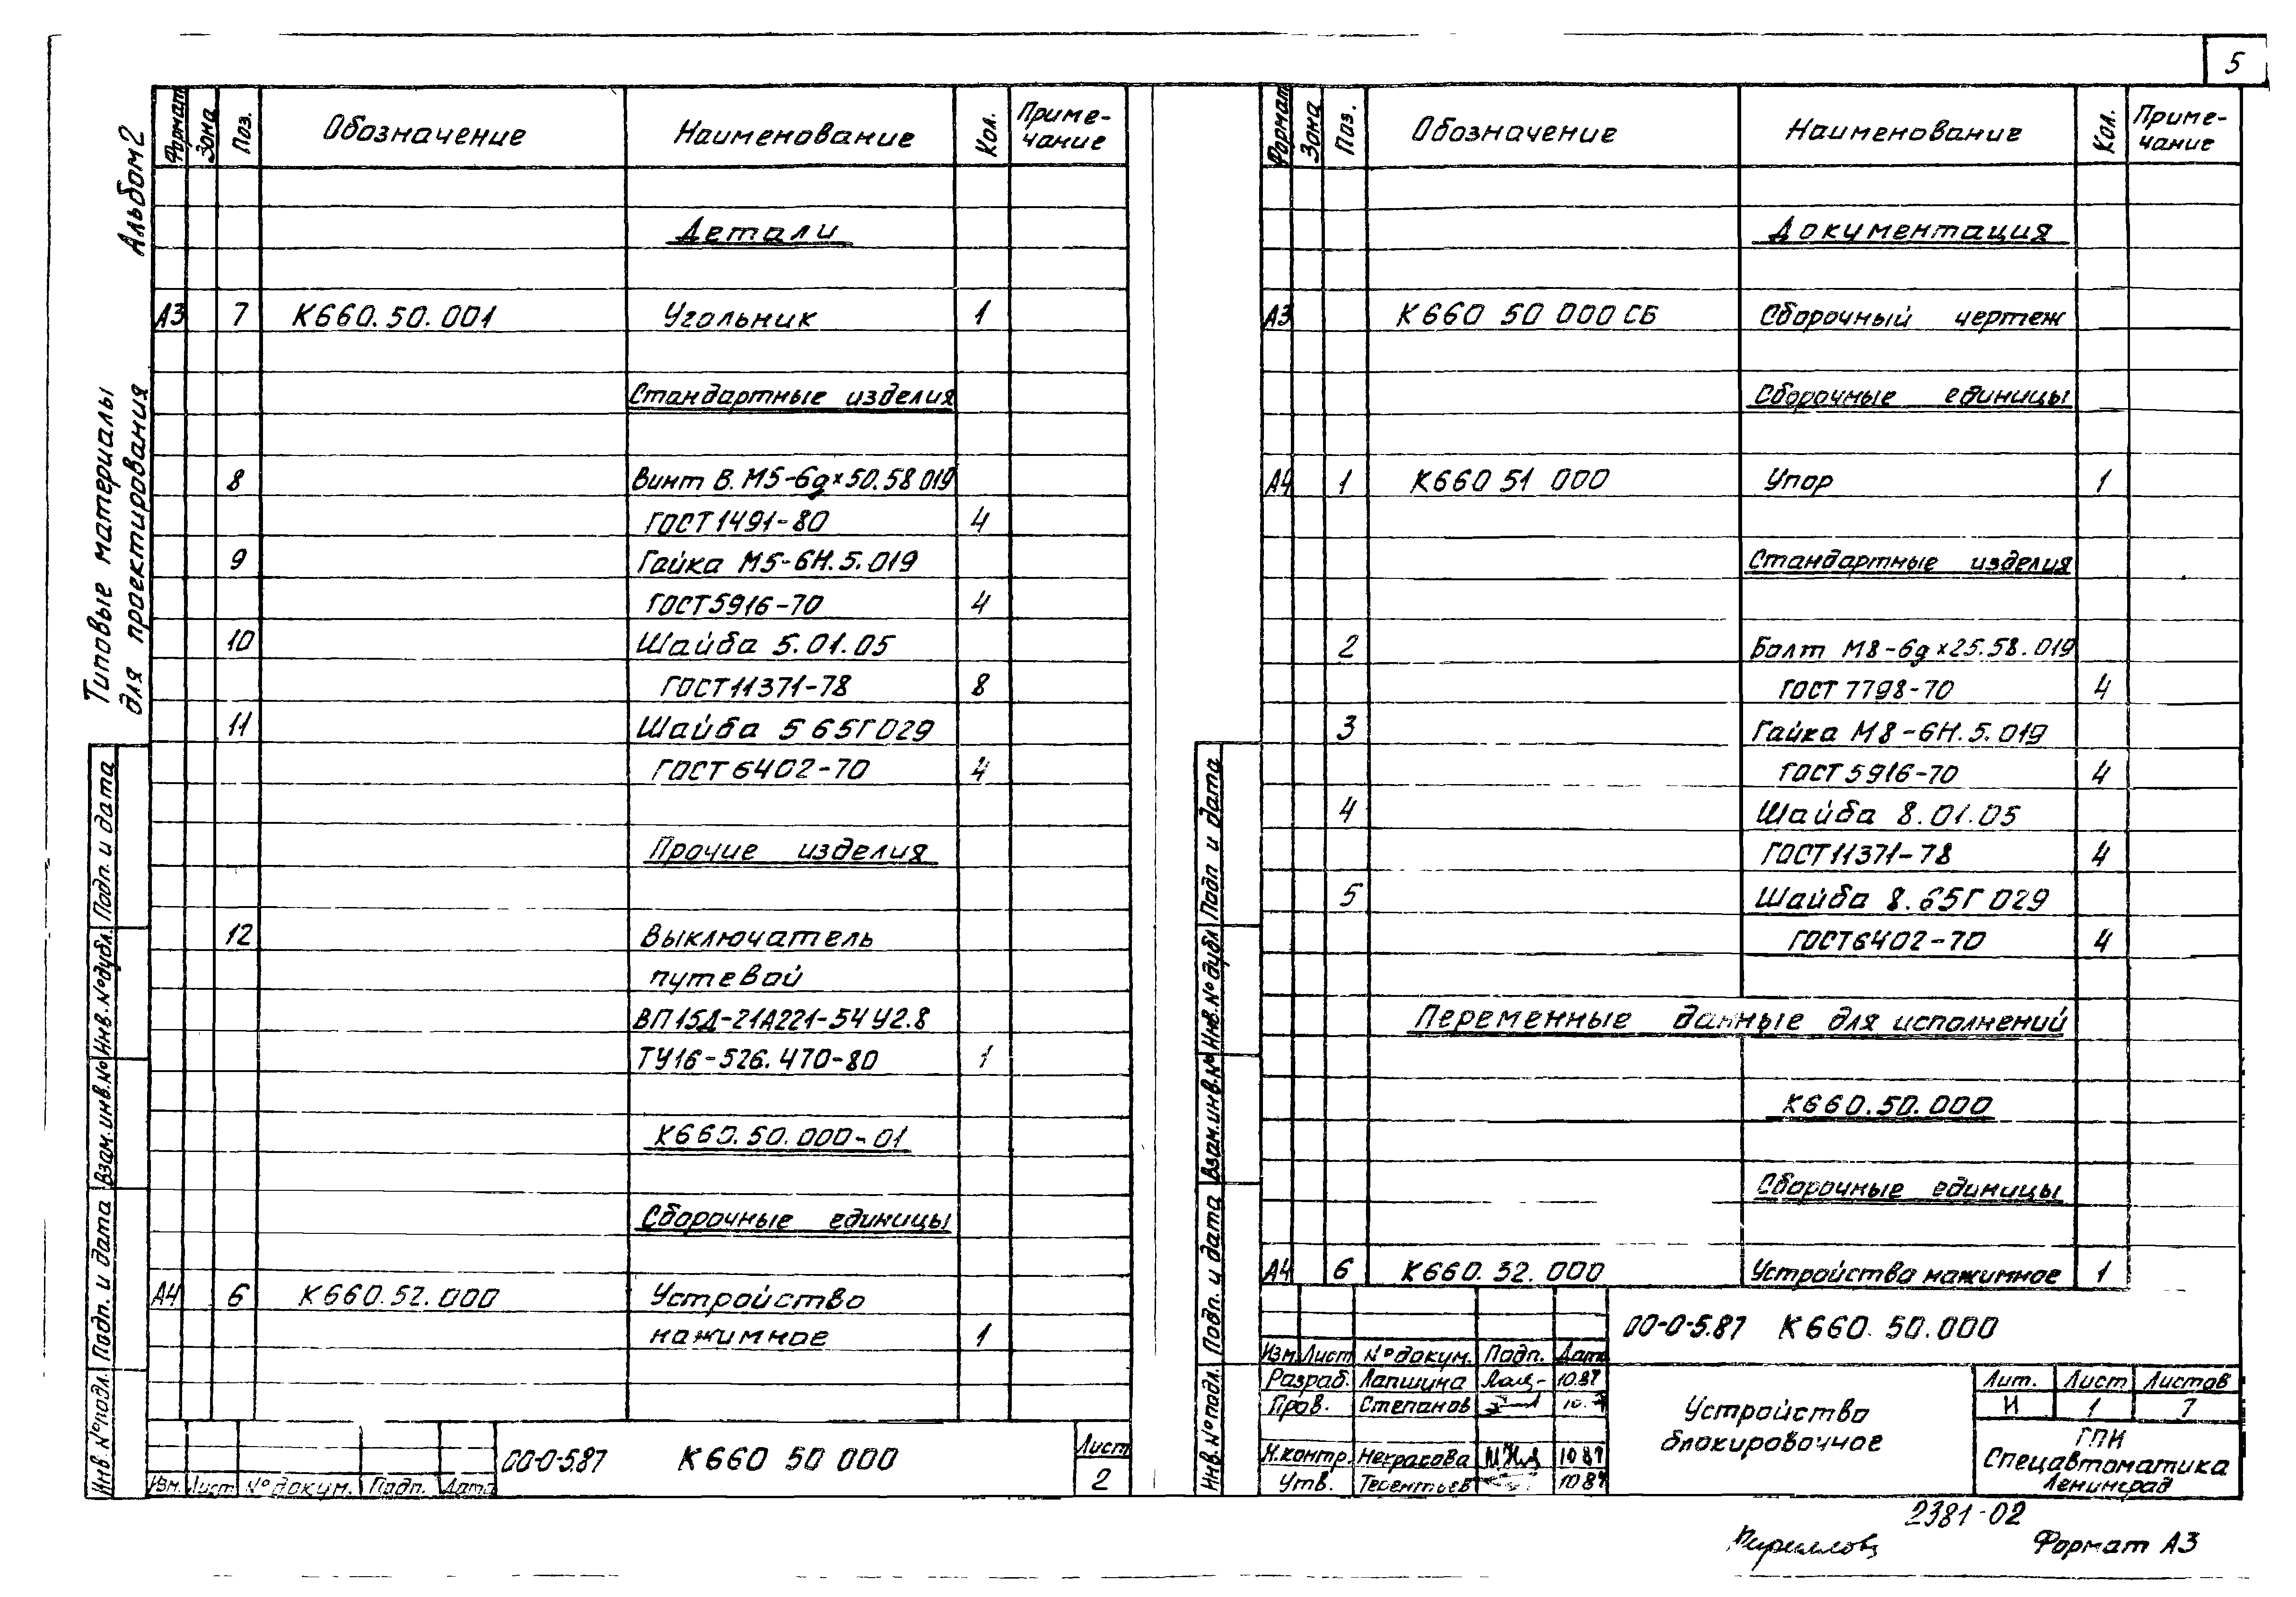 5
Альбом 2
Типовые материалы
для проектирования
Формат Зона Поз. Обозначение Наименование Кол. Приме-
чание
Детали
А3 7 К660.50.001 Угольник 1
Стандартные изделия
8 Винт В.М5-6g×50.58 019
ГОСТ 1491-80 4
9 Гайка М5-6Н.5.019
ГОСТ 5916-70 4
10 Шайба 5.01.05
ГОСТ 11371-78 8
11 Шайба 5 65Г 029
ГОСТ 6402-70 4
Прочие изделия
12 Выключатель
путевой
ВП15Д-21А221-54У2.8
ТУ16-526.470-80 1
К660.50.000-01
Сборочные единицы
А4 6 К660.52.000 Устройство
нажимное 1
Изм. Лист № докум. Подп. Дата
00-0-5.87 К660 50 000
Лист
2
Инв. № подл. Подп. и дата Взам. инв. № Инв. № дубл. Подп. и дата
Формат Зона Поз. Обозначение Наименование Кол. Приме-
чание
Документация
А3 К660 50 000 СБ Сборочный чертеж
Сборочные единицы
А4 1 К660 51 000 Упор 1
Стандартные изделия
2 Болт М8-6g×25.58.019
ГОСТ 7798-70 4
3 Гайка М8-6Н.5.019
ГОСТ 5916-70 4
4 Шайба 8.01.05
ГОСТ 11371-78 4
5 Шайба 8.65Г 029
ГОСТ 6402-70 4
Переменные данные для исполнений
К660.50.000
Сборочные единицы
А4 6 К660.52.000 Устройство нажимное 1
00-0-5.87 К660.50.000
Изм. Лист № докум. Подп. Дата
Разраб. Лапшина 10.87
Пров. Степанов
Н.контр. Некрасова 10 87
Утв. Терентьев 10 87
Устройство
блокировочное
Лит. Лист Листов
И 1 7
ГПИ
Спецавтоматика
Ленинград
Инв. № подл. Подп. и дата Взам. инв. № Инв. № дубл. Подп и дата
2381-02
Формат А3